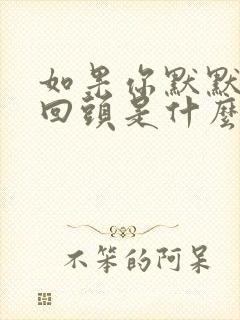 如果你默默
回頭是什麼
不笨的阿呆